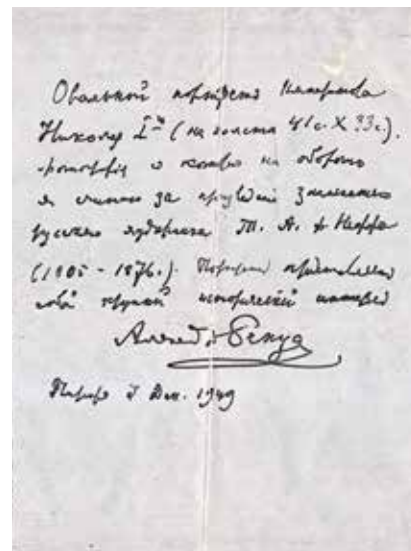 Овальный портрет Императора
Николая I-го (на холсте 41 с. X 33 с.)
фотография с коего на обороте
я считаю за произведение знаменитого
русского художника Т. А. ф Неффа
(1805 - 1876.). Портрет представляет
собой крупный исторический интерес
Александр Бенуа
Париж Дек. 1949